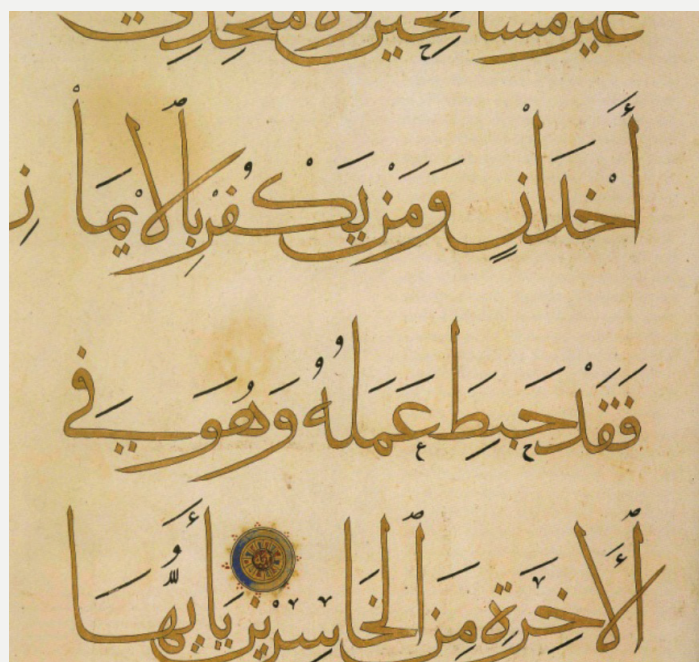 غَيْرَ مُسَافِحِينَ وَلَا مُتَّخِذِي
أَخْدَانٍ وَمَنْ يَكْفُرْ بِالْإِيمَانِ
فَقَدْ حَبِطَ عَمَلُهُ وَهُوَ فِي
الْآخِرَةِ مِنَ الْخَاسِرِينَ يَا أَيُّهَا